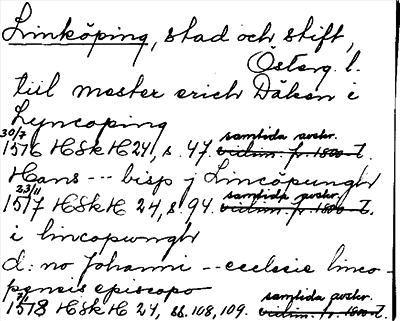 Linköping, stad och stift,
Österg. l.
tiil mester erich Däken i
Lyncoping
30/7 samtida avskr.
1516 HSkH 24, s. 47. vidim. fr. 1800-t.
Hans --- bisp j Lincöpungh
23/11 samtida avskr.
1517 HSkH 24, s. 94. vidim. fr. 1800-t.
i lincopwngh
d: no Johanni -- ecclesie linco-
pensis episcopo
1518 HSkH 24, ss. 108, 109. samtida avskr. vidim. fr. 1800-t.